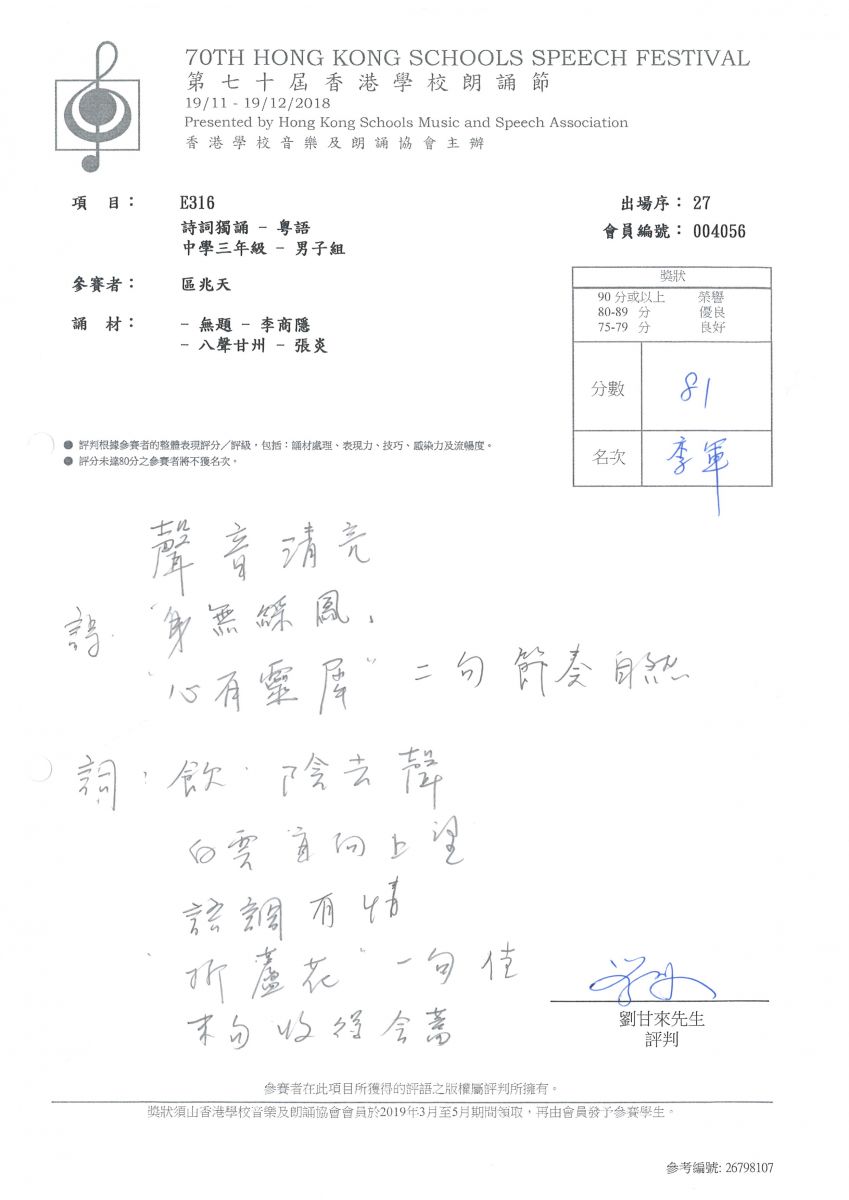 70TH HONG KONG SCHOOLS SPEECH FESTIVAL
第七十屆香港學校朗誦節
19/11 - 19/12/2018
Presented by Hong Kong Schools Music and Speech Association
香港學校音樂及朗誦協會主辦
項 目： E316
詩詞獨誦 - 粵語
中學三年級 - 男子組
出場序： 27
會員編號： 004056
參賽者： 區兆天
誦 材： - 無題 - 李商隱
- 八聲甘州 - 張炎
獎狀
90 分或以上 榮譽
80-89 分 優良
75-79 分 良好
分數 81
名次 季軍
● 評判根據參賽者的整體表現評分／評級，包括：誦材處理、表現力、技巧、感染力及流暢度。
● 評分未達80分之參賽者將不獲名次。
聲音清亮
詩．"身無綵鳳，
"心有靈犀" 二句 節奏自然
詞：飲．陰去聲
白雲 宜向上望
語調有情
"折蘆花" 一句佳
末句收得含蓄
劉甘來先生
評判
參賽者在此項目所獲得的評語之版權屬評判所擁有。
獎狀須由香港學校音樂及朗誦協會會員於2019年3月至5月期間領取，再由會員發予參賽學生。
參考編號: 26798107